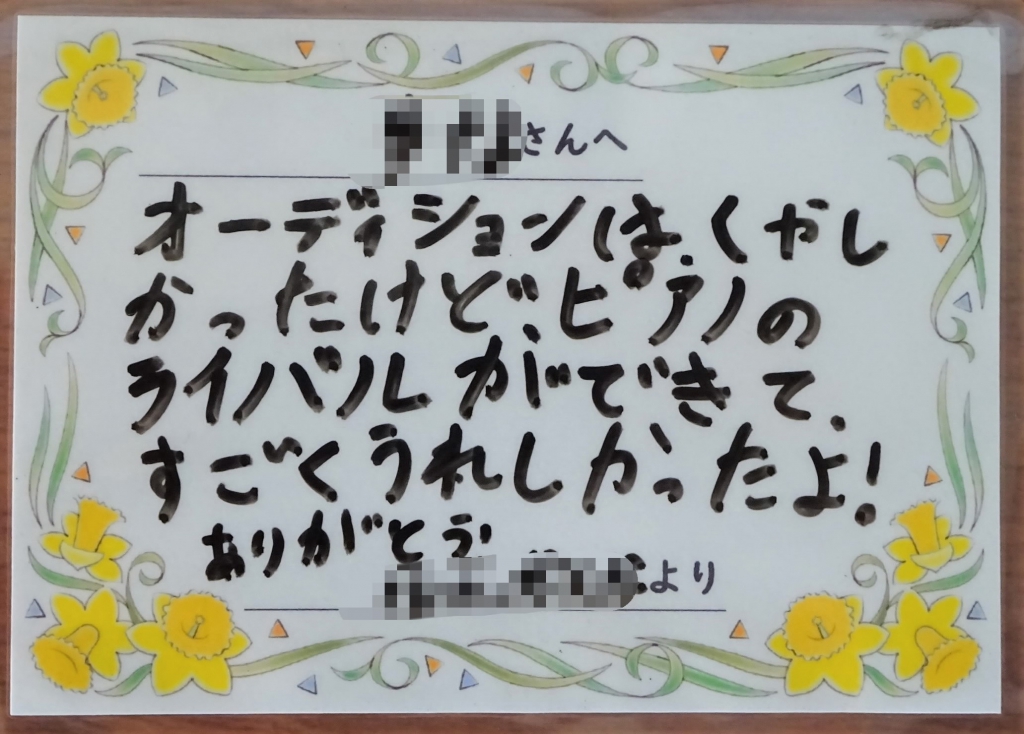 さんへ
オーディションは、くやし
かったけど、ピアノの
ライバルができて、
すごくうれしかったよ!
ありがとう
より